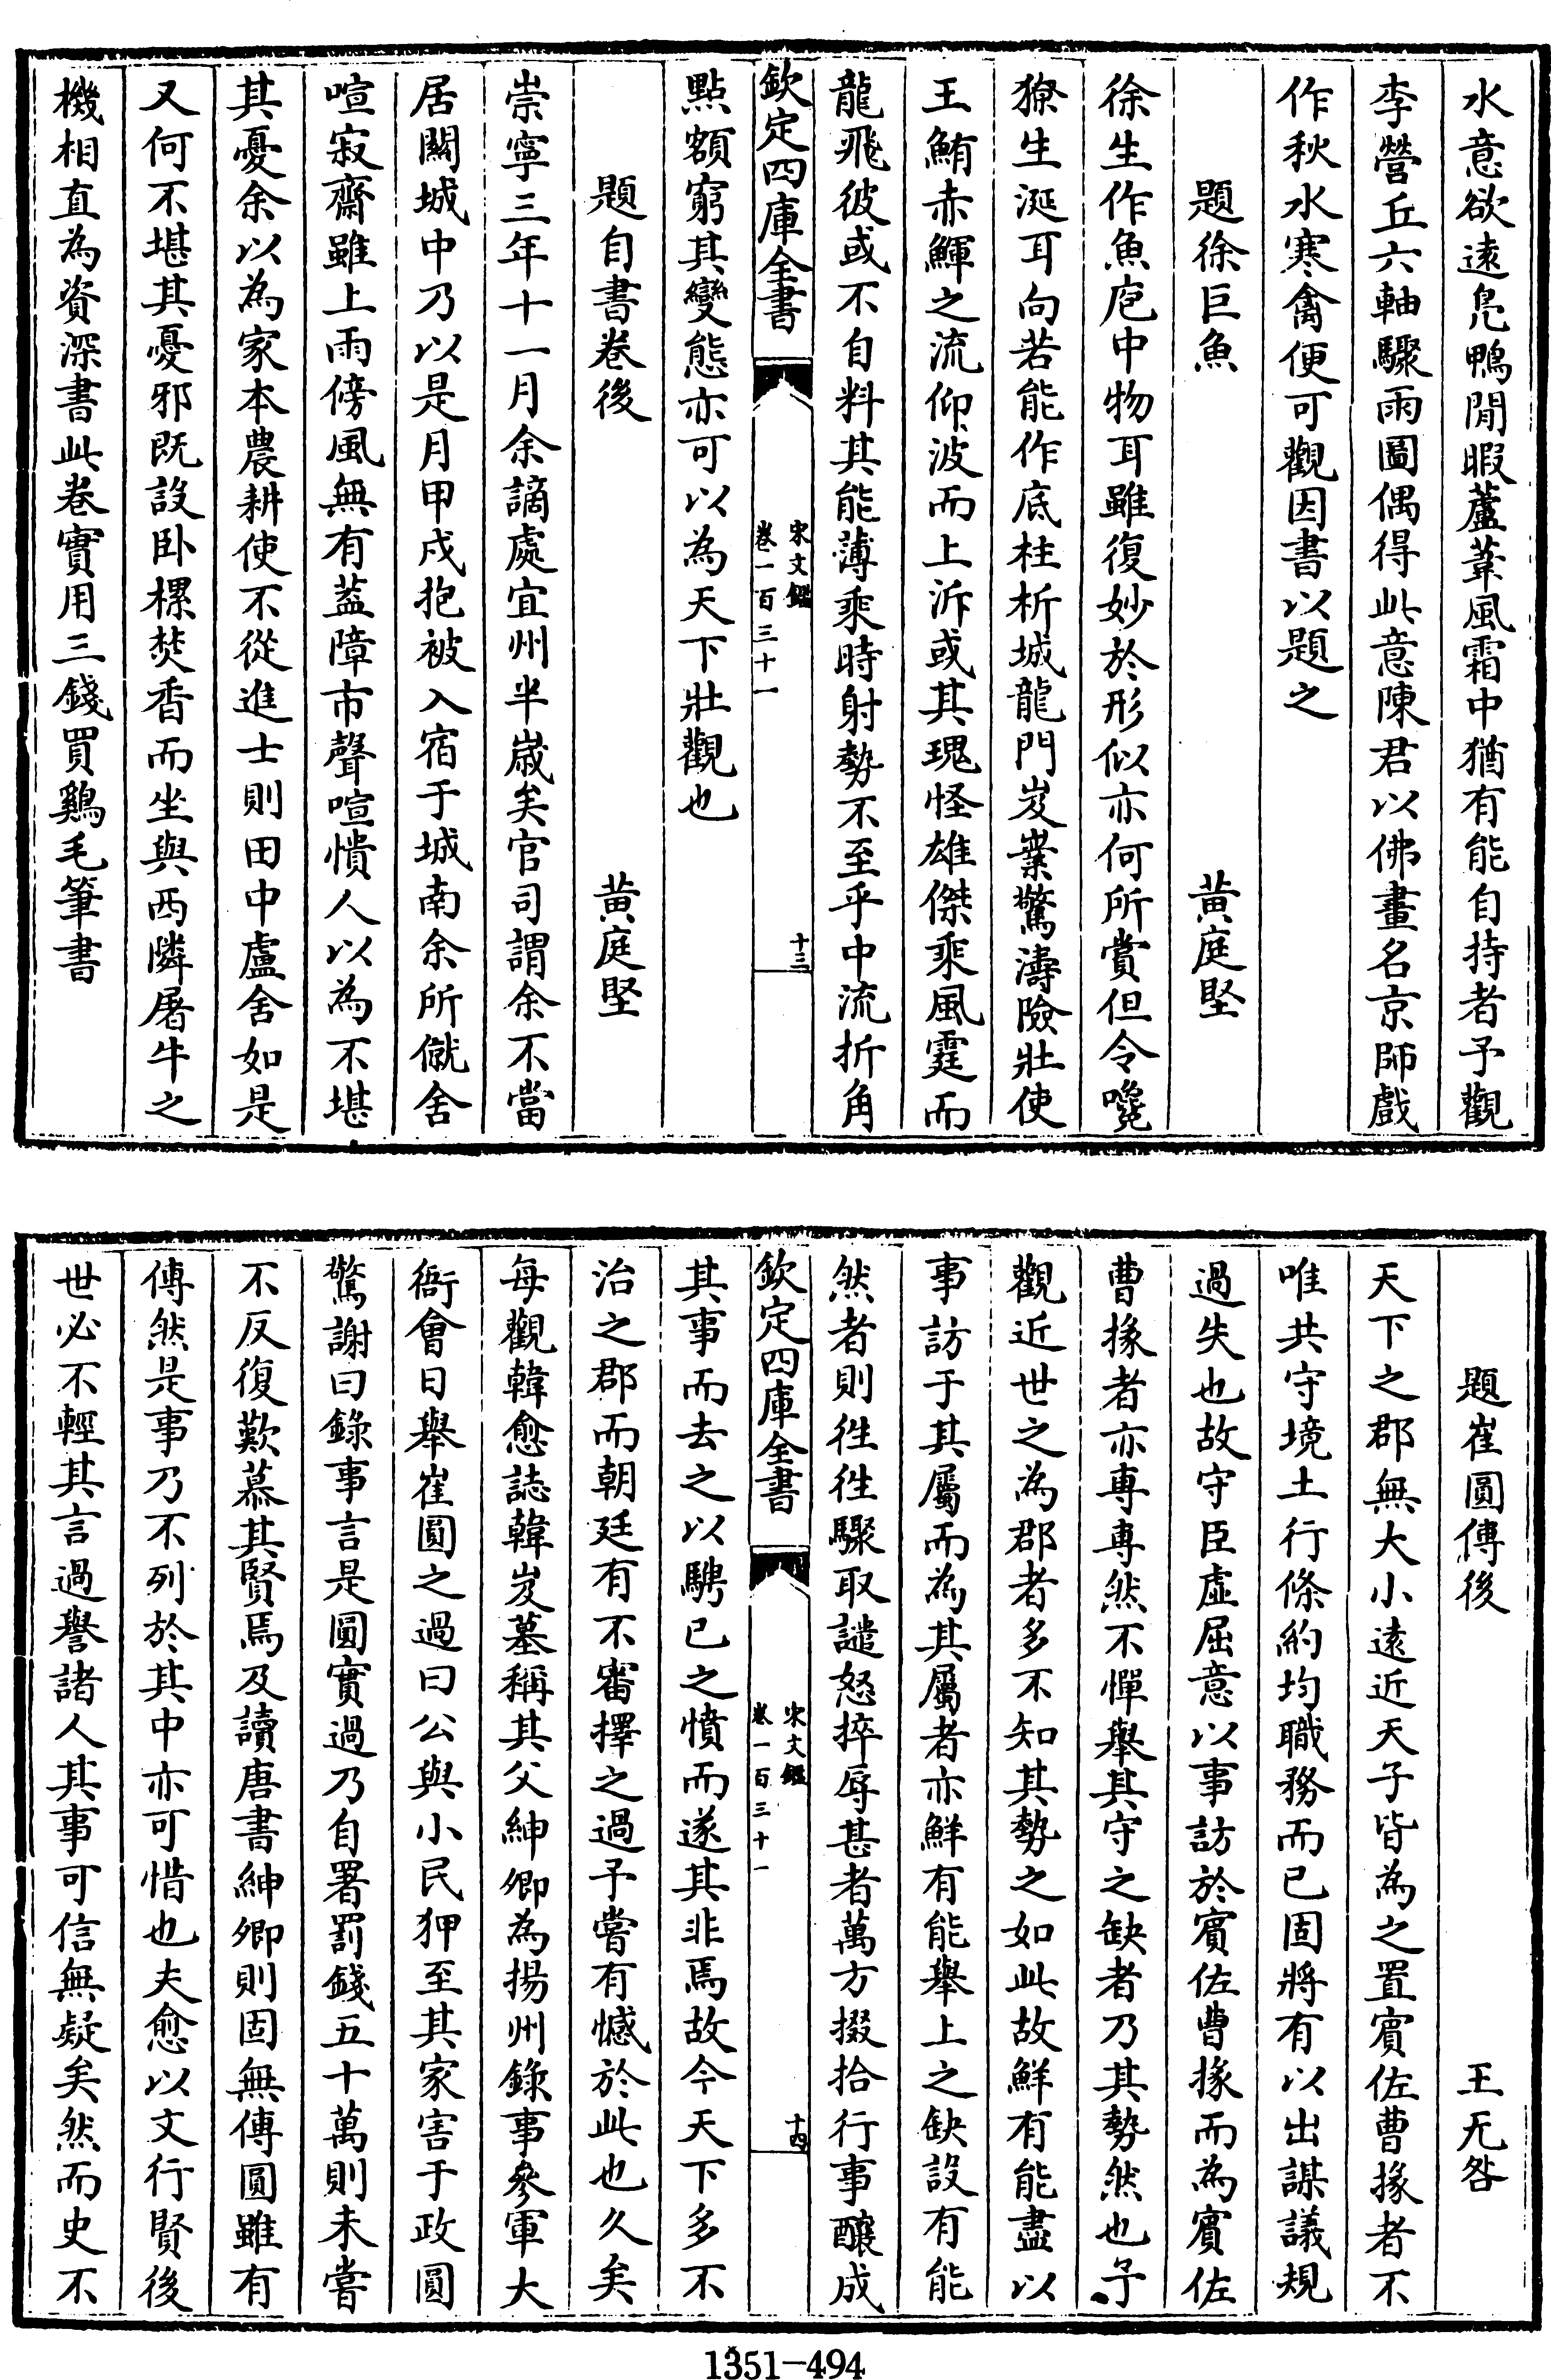 水意欲遠鳬鴨閒暇蘆葦風霜中猶有能自持者予觀
李營丘六軸驟雨圖偶得此意陳君以佛畫名京師戲
作秋水寒禽便可觀因書以題之
題徐巨魚　黄庭堅
徐生作魚庖中物耳雖復妙於形似亦何所賞但令嚵
獠生涎耳向若能作底柱析城龍門岌嶪驚濤險壯使
王鮪赤鯶之流仰波而上泝或其瑰怪雄傑乘風霆而
龍飛彼或不自料其能薄乘時射勢不至乎中流折角
欽定四庫全書　宋文鑑　卷一百三十一　十三
點額窮其變態亦可以為天下壯觀也
題自書卷後　黄庭堅
崇寧三年十一月余謫處宜州半嵗矣官司謂余不當
居關城中乃以是月甲戌抱被入宿于城南余所僦舍
喧寂齋雖上雨傍風無有葢障市聲喧憒人以為不堪
其憂余以為家本農耕使不從進士則田中廬舍如是
又何不堪其憂邪既設卧榻焚香而坐與西隣屠牛之
機相直為資深書此卷實用三錢買鷄毛筆書
題崔圓傳後　王无咎
天下之郡無大小遠近天子皆為之置賓佐曹掾者不
唯共守境土行條約均職務而已固將有以出謀議規
過失也故守臣虛屈意以事訪於賓佐曹掾而為賓佐
曹掾者亦專專然不憚舉其守之缺者乃其勢然也予
觀近世之為郡者多不知其勢之如此故鮮有能盡以
事訪于其屬而為其屬者亦鮮有能舉上之缺設有能
然者則徃徃驟取譴怒捽辱甚者萬方掇拾行事釀成
欽定四庫全書　宋文鑑　卷一百三十一　十四
其事而去之以騁已之憤而遂其非焉故今天下多不
治之郡而朝廷有不審擇之過予嘗有憾於此也久矣
每觀韓愈誌韓岌墓稱其父紳卿為揚州錄事參軍大
衙會日舉崔圓之過曰公與小民狎至其家害于政圓
驚謝曰錄事言是圓實過乃自署罰錢五十萬則未嘗
不反復歎慕其賢焉及讀唐書紳卿則固無傳圓雖有
傳然是事乃不列於其中亦可惜也夫愈以文行賢後
世必不輕其言過譽諸人其事可信無疑矣然而史不
1351-494